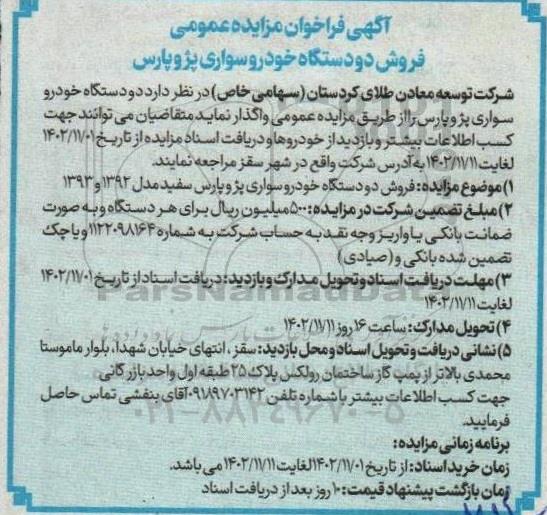 آگهی فراخوان مزایده عمومی
فروش دو دستگاه خودرو سواری پژو پارس
شرکت توسعه معادن طلای کردستان (سهامی خاص) در نظر دارد دو دستگاه خودرو
سواری پژو پارس را از طریق مزایده عمومی واگذار نماید متقاضیان می توانند جهت
کسب اطلاعات بیشتر و بازدید از خودروها و دریافت اسناد مزایده از تاریخ ۱۴۰۲/۱۱/۰۱
لغایت ۱۴۰۲/۱۱/۱۱ به آدرس شرکت واقع در شهر سقز مراجعه نمایند.
۱) موضوع مزایده: فروش دو دستگاه خودرو سواری پژو پارس سفید مدل ۱۳۹۲ و ۱۳۹۳
۲) مبلغ تضمین شرکت در مزایده: ۵۰۰ میلیون ریال برای هر دستگاه و به صورت
ضمانت بانکی یا واریز وجه نقد به حساب شرکت به شماره ۱۱۲۲۰۹۸۱۶۴ و یا چک
تضمین شده بانکی و (صیادی)
۳) مهلت دریافت اسناد و تحویل مدارک و بازدید: دریافت اسناد از تاریخ ۱۴۰۲/۱۱/۰۱
لغایت ۱۴۰۲/۱۱/۱۱
۴) تحویل مدارک: ساعت ۱۶ روز ۱۴۰۲/۱۱/۱۱
۵) نشانی دریافت و تحویل اسناد و محل بازدید: سقز، انتهای خیابان شهدا، بلوار ماموستا
محمدی بالاتر از پمپ گاز ساختمان رولکس پلاک ۲۵ طبقه اول واحد بازرگانی
جهت کسب اطلاعات بیشتر با شماره تلفن ۰۹۱۸۹۷۰۳۱۴۲ آقای بنفشی تماس حاصل
فرمایید.
برنامه زمانی مزایده:
زمان خرید اسناد: از تاریخ ۱۴۰۲/۱۱/۰۱ لغایت ۱۴۰۲/۱۱/۱۱ می باشد.
زمان بازگشت پیشنهاد قیمت: ۱۰ روز بعد از دریافت اسناد
ParsNamadData
۰۲۱-۸۸۳۴۹۶۷۰-۵